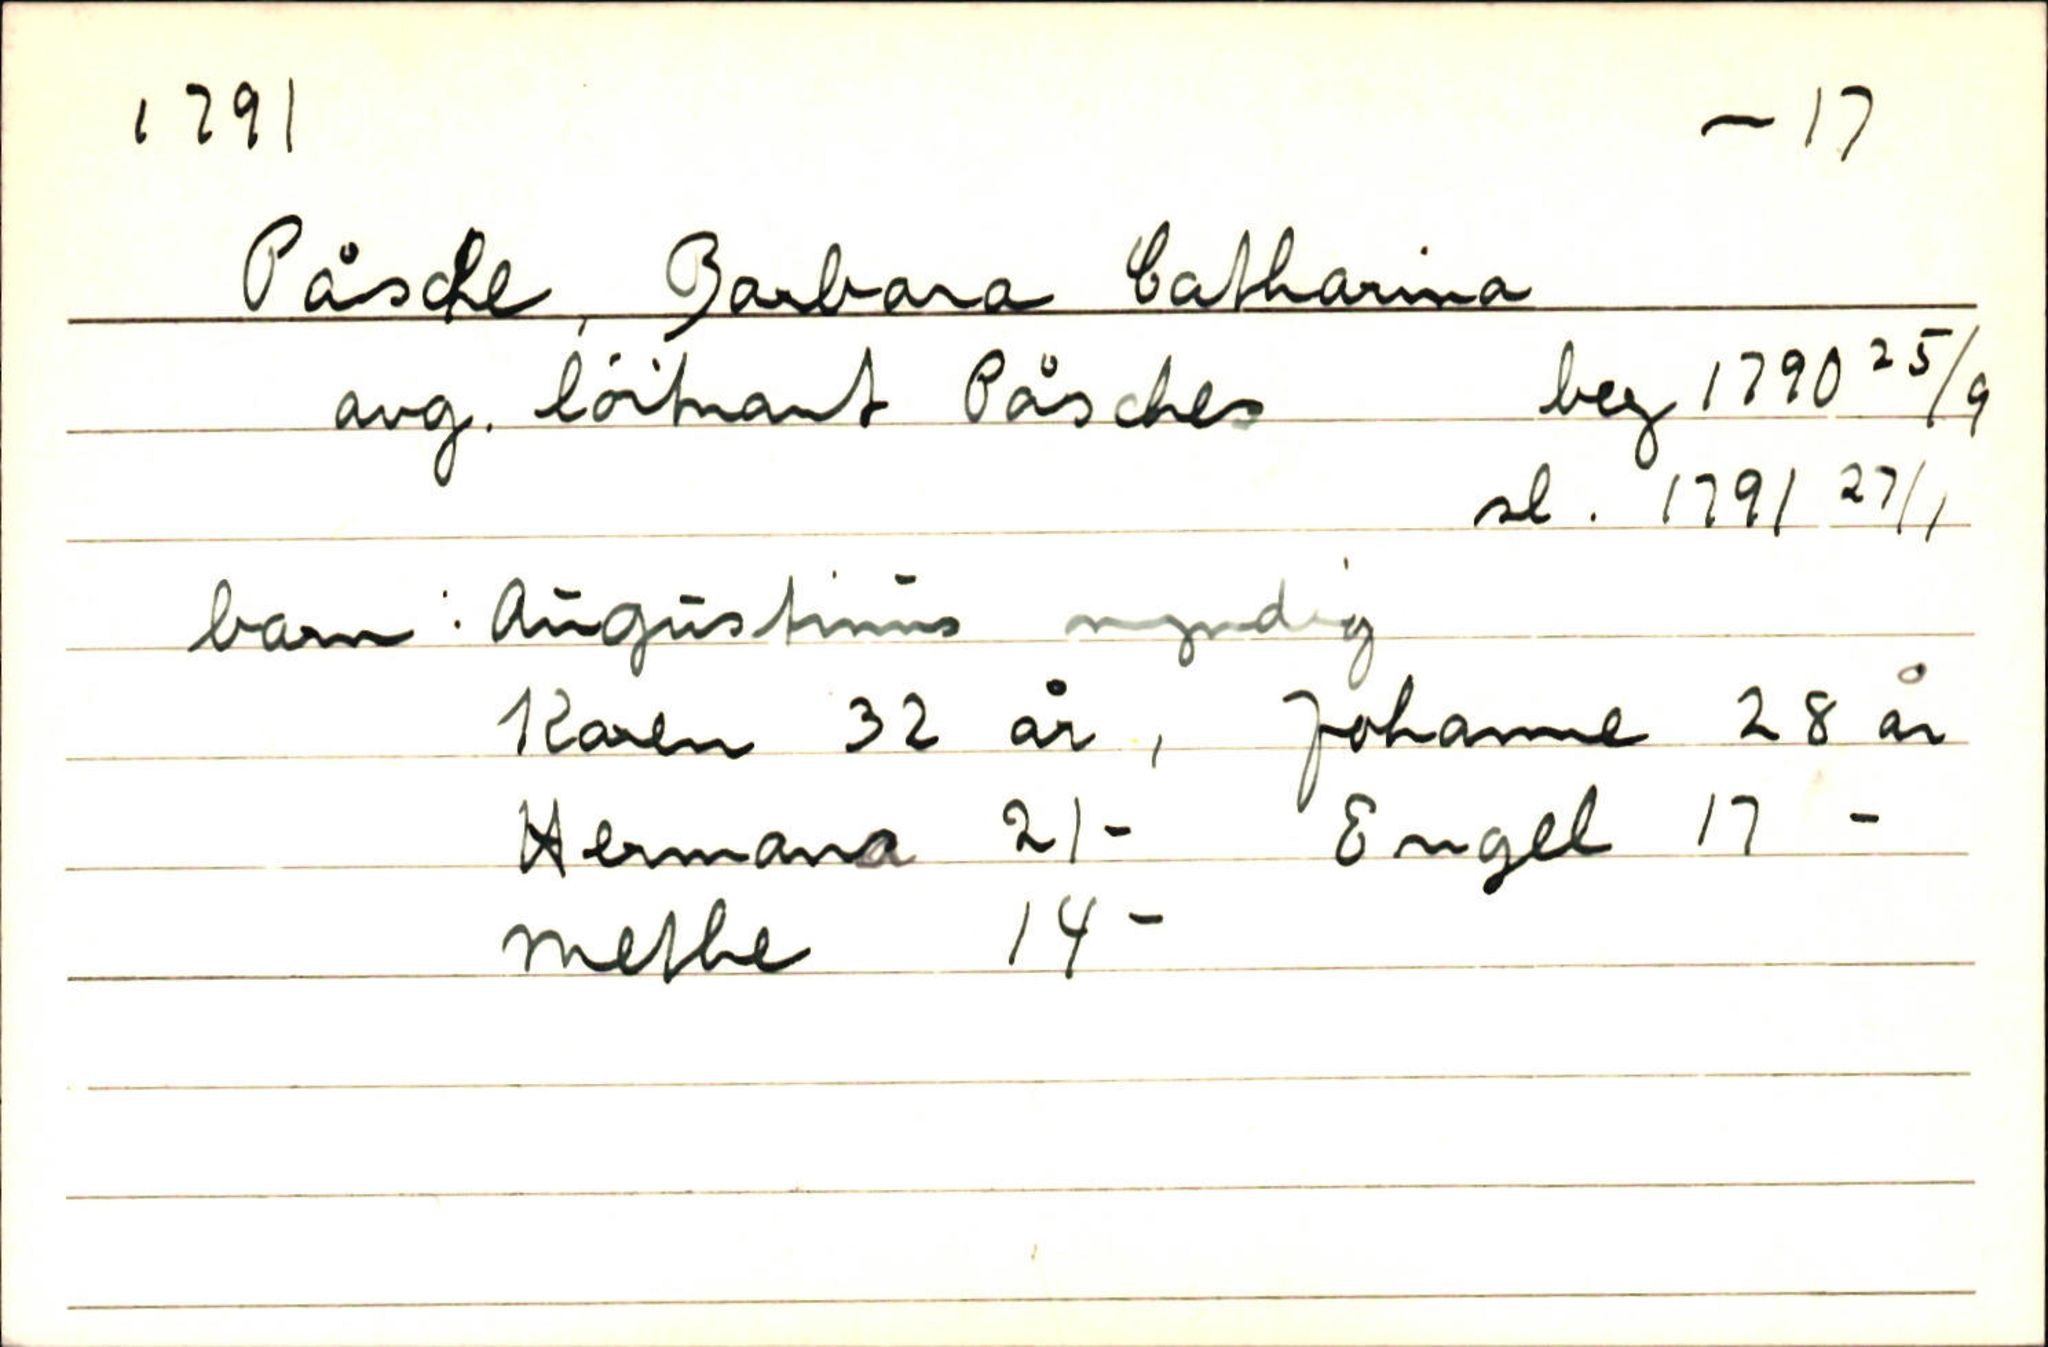 1791 – 17
Påsche, Barbara Catharina
avg. löitnant Påsches beg 1790 25/9
sl. 1791 27/1
barn: Augustinus myndig
Karen 32 år, Johanne 28 år
Hermana 21 - Engel 17 -
Methe 14 -